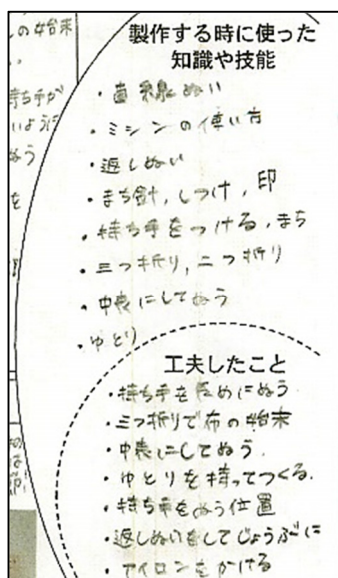 の始末
持ち手が
いように
ぬう
を
製作する時に使った
知識や技能
・直線ぬい
・ミシンの使い方
・返しぬい
・まち針,しつけ,印
・持ち手をつける,まち
・三つ折り,二つ折り
・中表にしてぬう
・ゆとり
工夫したこと
・持ち手をためにぬう
・三つ折りで布の始末
・中表にしてぬう.
・ゆとりを持ってつくる.
・持ち手をぬう位置
・返しぬいをしてじょうぶに
・アイロンをかける